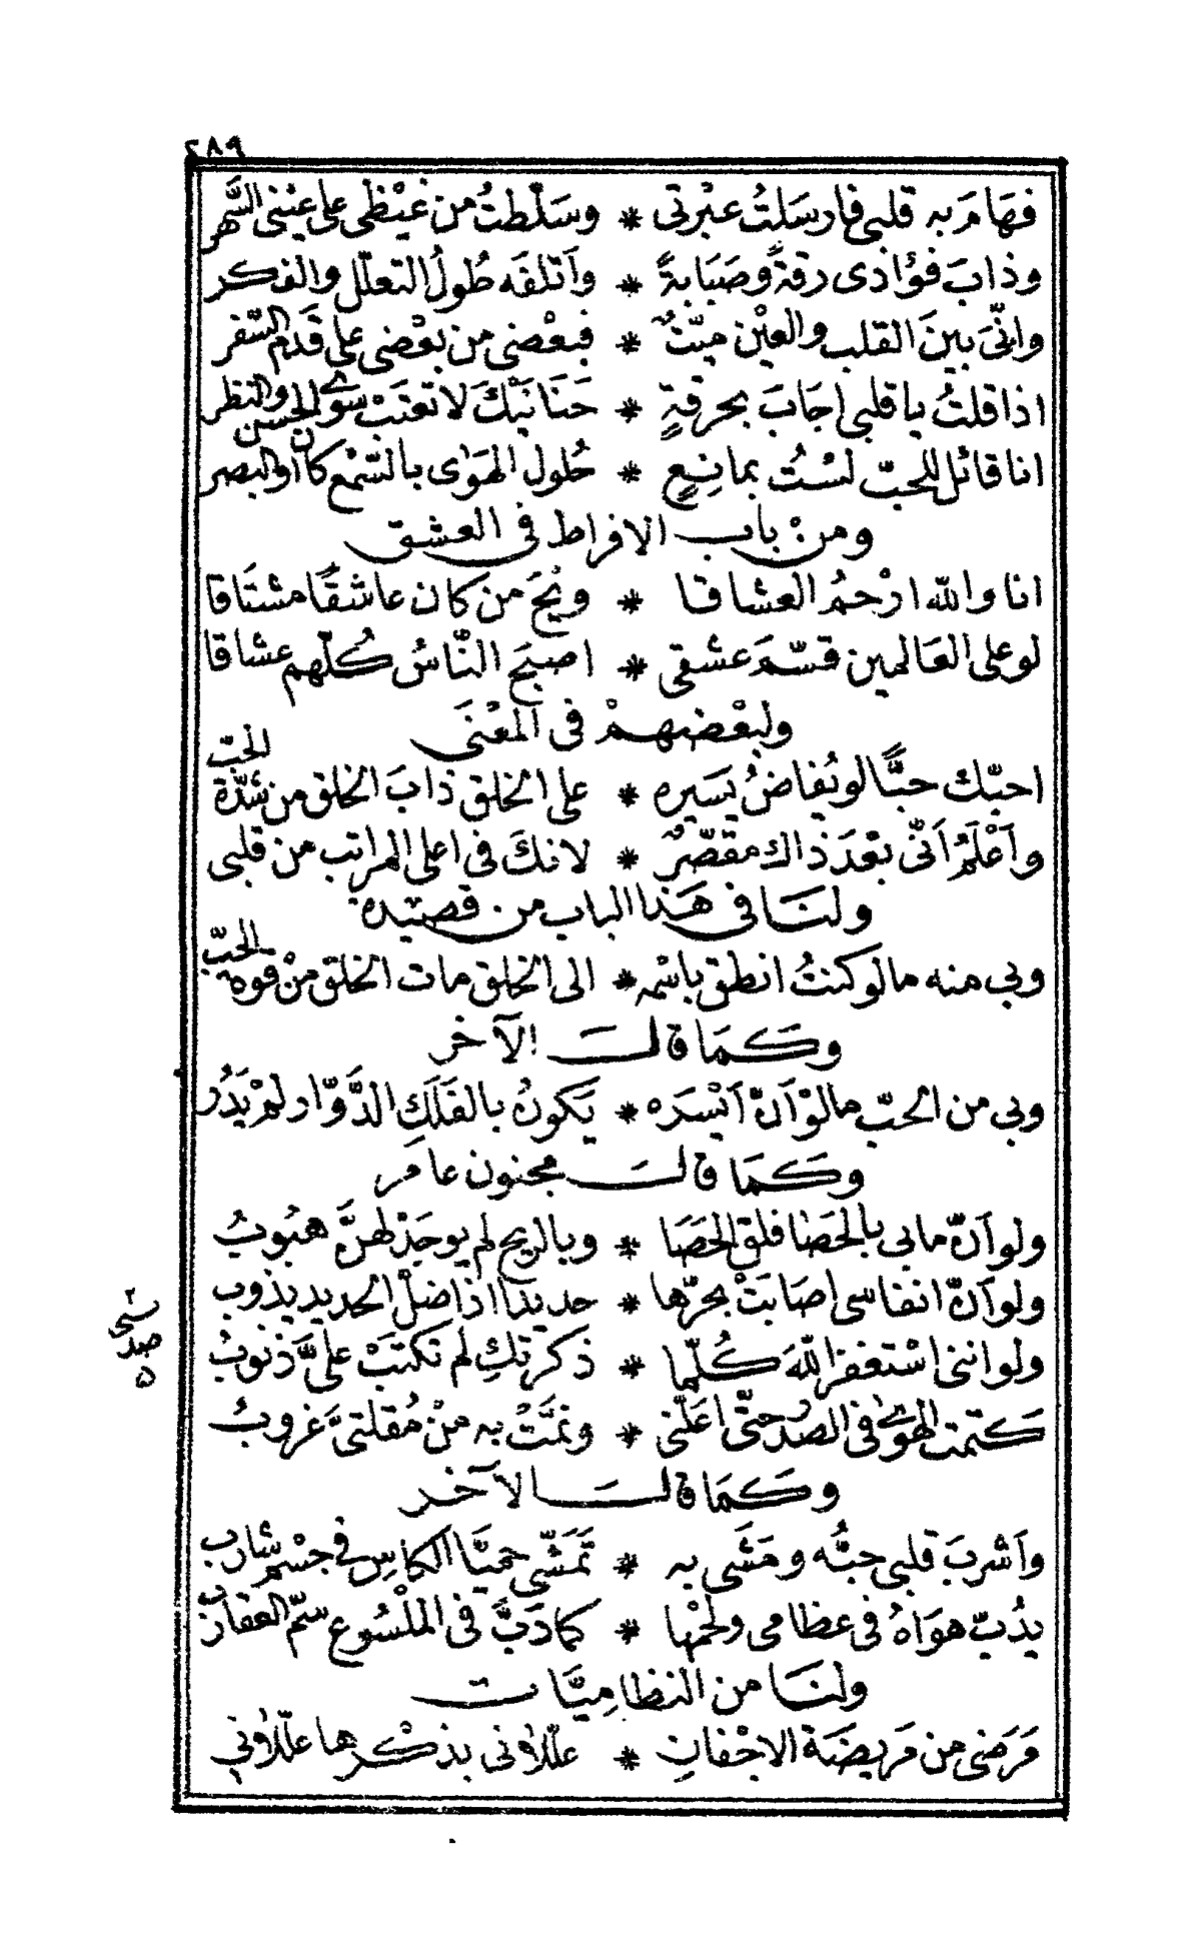 ٢٨٩
فهَامَ به قلبى فارسَلتُ عبْرتى * وسَلّطتُ من غيْظى على عيْنى السَّهر
وذابَ فؤادى رقةً وصَبَابةً * وأتلفَه طُولُ التعلّل والفكر
وانّىَ بينَ القلب والعيْن ميّتٌ * فبعْضى من بعْضى على قَدَم السّفر
اذا قلتُ يا قلبى اجَابَ بحرقةٍ * حَنَانَيْكَ لا تعتبْ سوى الحسن والنظر
انا قائل للحبّ لسْتُ بمانِعٍ * حُلول الهَوٰى بالسّمْع كان اوالبصر
ومنْ باب الافراط فى العشق
انا والله ارْحمُ العشاقا * ويْحَ من كان عاشقًا مشتَاقا
لو على العَالمين قسّمَ عشقى * اصبحَ النّاسُ كُلّهم عشاقا
ولبعْضهمْ فى المَعْنَى
احبّك حبًّا لو يُفاضُ يَسَيره * على الخلق ذابَ الخلق من شدّة الحبّ
وأعْلَمُ أنّى بعْدَ ذاك مقصّرٌ * لانكَ فى اعلى المراتب من قلبى
ولنَا فى هَذا الباب من قصيده
وبى منه ما لو كنتُ انطق باسْمه * الى الخلق مات الخلق منْ قوه الحبّ
وكمَا قالَ الآخر
وبى من الحبّ ما لوْ أنّ أيْسَره * يَكونُ بالفَلَكِ الدَّوّار لمْ يَدُر
وكمَا قالَ مجنون عامر
ولو أنّ ما بى بالحَصٰا فلق الحَصَا * وبالريح لم يوجَدْ لهنَّ هبُوبُ
ولو أنّ انفاسى اصَابتْ بحرّها * حديدًا اذًا ضلْ الحديد يذوب
ولو اننى اسْتغفر اللّهَ كُلّما * ذكرْتكِ لم تكتبْ علىَّ ذنوبُ
كتمت الهوىٰ فى الصدْر حتّى اعَلّنى * ونمَّتْ به منْ مُقلتىَّ غروبُ
وكمَا قالَ الآخر
وأشربَ قلبى حبُّه ومَشَى به * تَمَشّى حميَّا الكاسِ فى جسْم شارب
يدُبّ هوَاهُ فى عظامى ولحمْها * كما دَبَّ فى الملْسُوع سمّ العقارب
ولنَا من النظاميَّات
مَرَضى من مَريضَة الاجْفانِ * علّلاٰنى بذكْرها علّلاٰنى